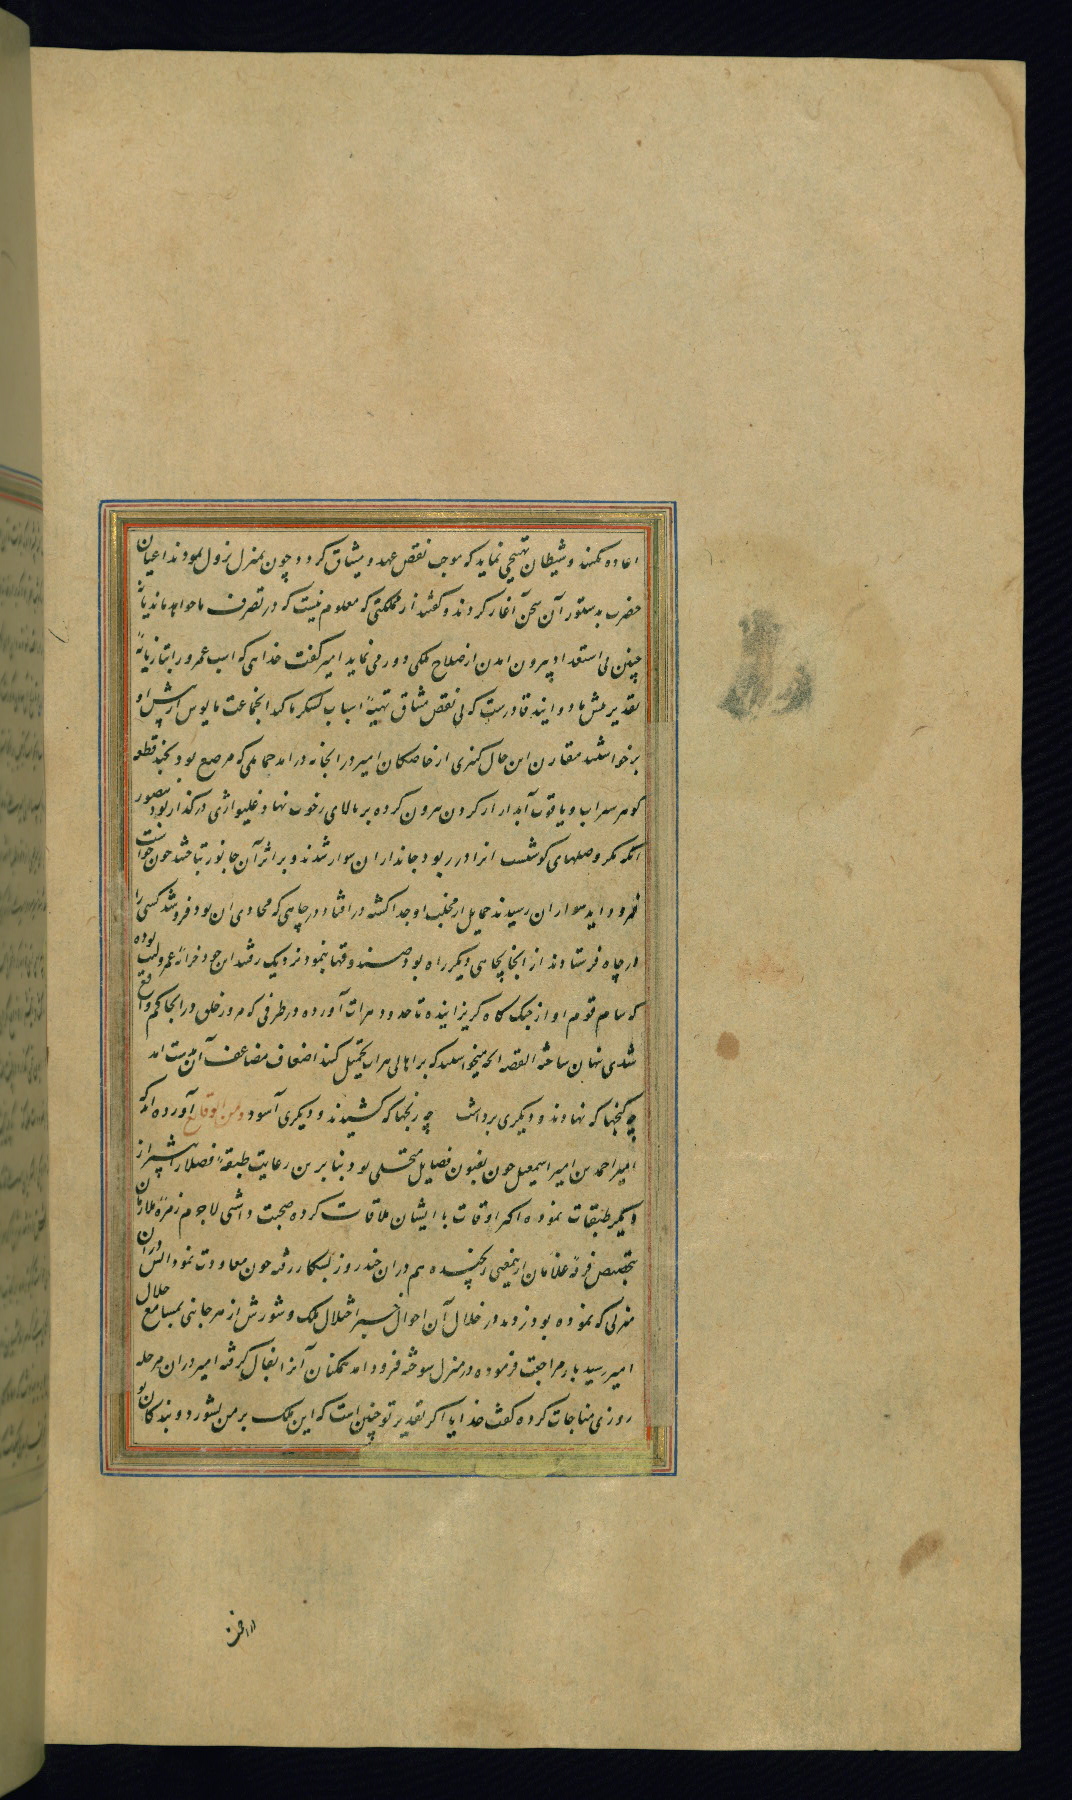 اعاده نکنند و شیطان تهییجی نماید که موجب نقض عهد و میثاق کردد و چون بمنزل نزول نمودند اعیان
حضرت بدستور آن سخن آغاز کردند و کفتند از مملکتی که معلوم نیست که در تصرف ما خواهد ماند یا نه
چنین بی استعداد بیرون آمدن از صلاح ملکی دور می نماید امیر کفت خدایی که اسب عمرو را بتازیانهٔ
تقدیر پیش ما دوانید قادرست که بی نقض میثاق تهیهٔ اسباب لشکر ما کند انجماعت مایوس از پیش او
برخواستند مقارن این حال کنیزی از خاصکان امیر در انجا در امد حمایلی که مرصع بود بچند قطعه
کوهر سیراب و یاقوت آبدار از کردن بیرون کرده بر بالای رخوت نهاد غلیواژی در کذار بود بتصور
انکه مکر وصلهای کوشتست انرا در ربود جانداران سوار شدند و بر اثر آن جانور بتاختند چون خواست
فرود اید سواران رسیدند حمایل از مخلب او جدا کشته در افتاد در چاهی که محاذی ان بود فرو شد کسی را
در چاه فرستادند از انجا بچاهی دیکر راه بود صندوقها بنمود نزدیک رفتند ان خود خزانهٔ عمرو لیث بوده
که سام قوم او از جنک کاه کریزانیده تا حدود هرات آورده در طرفی که مرور خلق در انجا کم واقع
شدی نهان ساخته القصه انچه میخواستند که بر اهالی هراة تحمیل کنند اضعاف مضاعف آن بدست امد
چه کنجها که نهادند و دیکری برداشت چه رنجها که کشیدند و دیکری آسود و من الوقایع آورده اند که
امیر احمد بن امیر اسمعیل چون بفنون فضایل متحلی بود بنابرین رعایت طبقهٔ فضلا را بیشتر از
دیکر طبقات نموده اکثر اوقات با ایشان ملاقات کرده صحبت داشتی لاجرم زمرهٔ ملازمان
بتخصیص فرقهٔ غلامان ازینمعنی رنجیده هم دران چند روز بشکار رفته چون معاودت نمود اتش دران
منزلی که نموده بود زدند در خلال آن احوال خبر اختلال ملک و شورش از هر جانبی بمسامع جلال
امیر رسید بار مراجعت فرموده در منزل سوخته فرود امد همکنان آنرا بفال کرفته امیر دران مرحله
روزی مناجات کرده کفت خدایا اکر تقدیر تو چنین است که این ملک بر من بشورد و بندکان تو